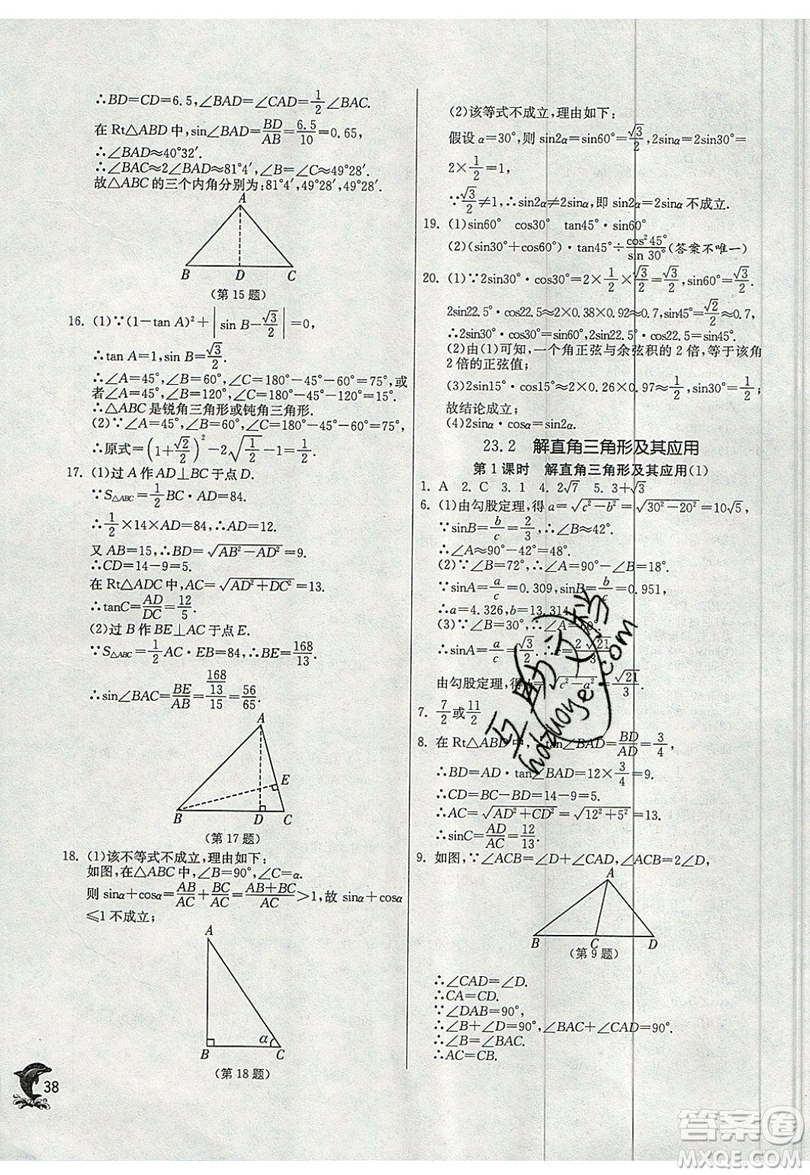 ∴BD=CD=6.5,∠BAD=∠CAD=1/2∠BAC.
在Rt△ABD中,sin∠BAD=BD/AB=6.5/10=0.65,
∴∠BAD≈40°32′.
∴∠BAC≈2∠BAD≈81°4′,∠B=∠C≈49°28′.
故△ABC的三个内角分别为:81°4′,49°28′,49°28′.
A
B D C
(第15题)
16. (1)∵(1-tan A)²+|sin B-√3/2|=0,
∴tan A=1,sin B=√3/2.
∴∠A=45°,∠B=60°,∠C=180°-45°-60°=75°,或
者∠A=45°,∠B=120°,∠C=180°-45°-120°=15°.
∴△ABC是锐角三角形或钝角三角形.
(2)∵∠A=45°,∠B=60°,∠C=180°-45°-60°=75°,
∴原式=(1+√2/2)²-2√(1/2)
17. (1)过A作AD⊥BC于点D.
∵S△ABC=1/2BC·AD=84,
∴1/2×14×AD=84,∴AD=12.
又AB=15,∴BD=√(AB²-AD²)=9.
∴CD=14-9=5.
在Rt△ADC中,AC=√(AD²+DC²)=13.
∴tanC=AD/DC=12/5.
(2)过B作BE⊥AC于点E.
∵S△ABC=1/2AC·EB=84,∴BE=168/13.
∴sin∠BAC=BE/AB=(168/13)/15=56/65.
A
E
B D C
(第17题)
18. (1)该不等式不成立,理由如下:
如图,在△ABC中,∠B=90°,∠C=α.
则sinα+cosα=AB/AC+BC/AC=(AB+BC)/AC>1,故sinα+cosα
≤1不成立;
A
B α C
(第18题)
38
(2)该等式不成立,理由如下:
假设α=30°,则sin2α=sin60°=√3/2,2sinα=2sin30°=
2×1/2=1,
∵√3/2≠1,∴sin2α≠2sinα,即sin2α=2sinα不成立.
19. (1)sin60° cos30° tan45°·sin60°
(2)(sin30°+cos60°)·tan45°÷cos²45°/sin 30°(答案不唯一)
20. (1)∵2sin30°·cos30°=2×1/2×√3/2=√3/2,sin60°=√3/2.
2sin22.5°·cos22.5≈2×0.38×0.92≈0.7,sin45°=√2/2≈0.7,
∴2sin30°·cos30°=sin60°,2sin22.5°·cos22.5=sin45°;
(2)由(1)可知,一个角正弦与余弦积的2倍,等于该角
2倍的正弦值;
(3)2sin15°·cos15°≈2×0.26×0.97≈1/2,sin30°=1/2;
故结论成立;
(4)2sinα·cosα=sin2α.
23.2 解直角三角形及其应用
第1课时 解直角三角形及其应用(1)
1. A 2. C 3. 1 4. 2√7 5. 3+√3
6. (1)由勾股定理,得a=√(c²-b²)=√(30²-20²)=10√5,
∵sinB=b/c=2/3,∴∠B≈42°.
∴∠A≈90°-42°=48°.
(2)∵∠B=72°,∴∠A=90°-∠B=18°.
∵sinA=a/c=0.309,sinB=b/c=0.951,
∴a=4.326,b=13.314.
由勾股定理,
7. 7/2或11/2
8. 在Rt△ABD中,tan∠BAD=BD/AD=3/4,
∴BD=AD·tan∠BAD=12×3/4=9.
∴CD=BC-BD=14-9=5.
∴AC=√(AD²+CD²)=√(12²+5²)=13.
∴sinC=AD/AC=12/13.
9. 如图,∵∠ACB=∠D+∠CAD,∠ACB=2∠D,
A
B C D
(第9题)
∴∠CAD=∠D.
∴CA=CD.
∵∠DAB=90°,
∴∠B+∠D=90°,∠BAC+∠CAD=90°.
∴∠B=∠BAC.
∴AC=CB.
互助文档
hdzuoye.com
答案圈
MXQE.COM